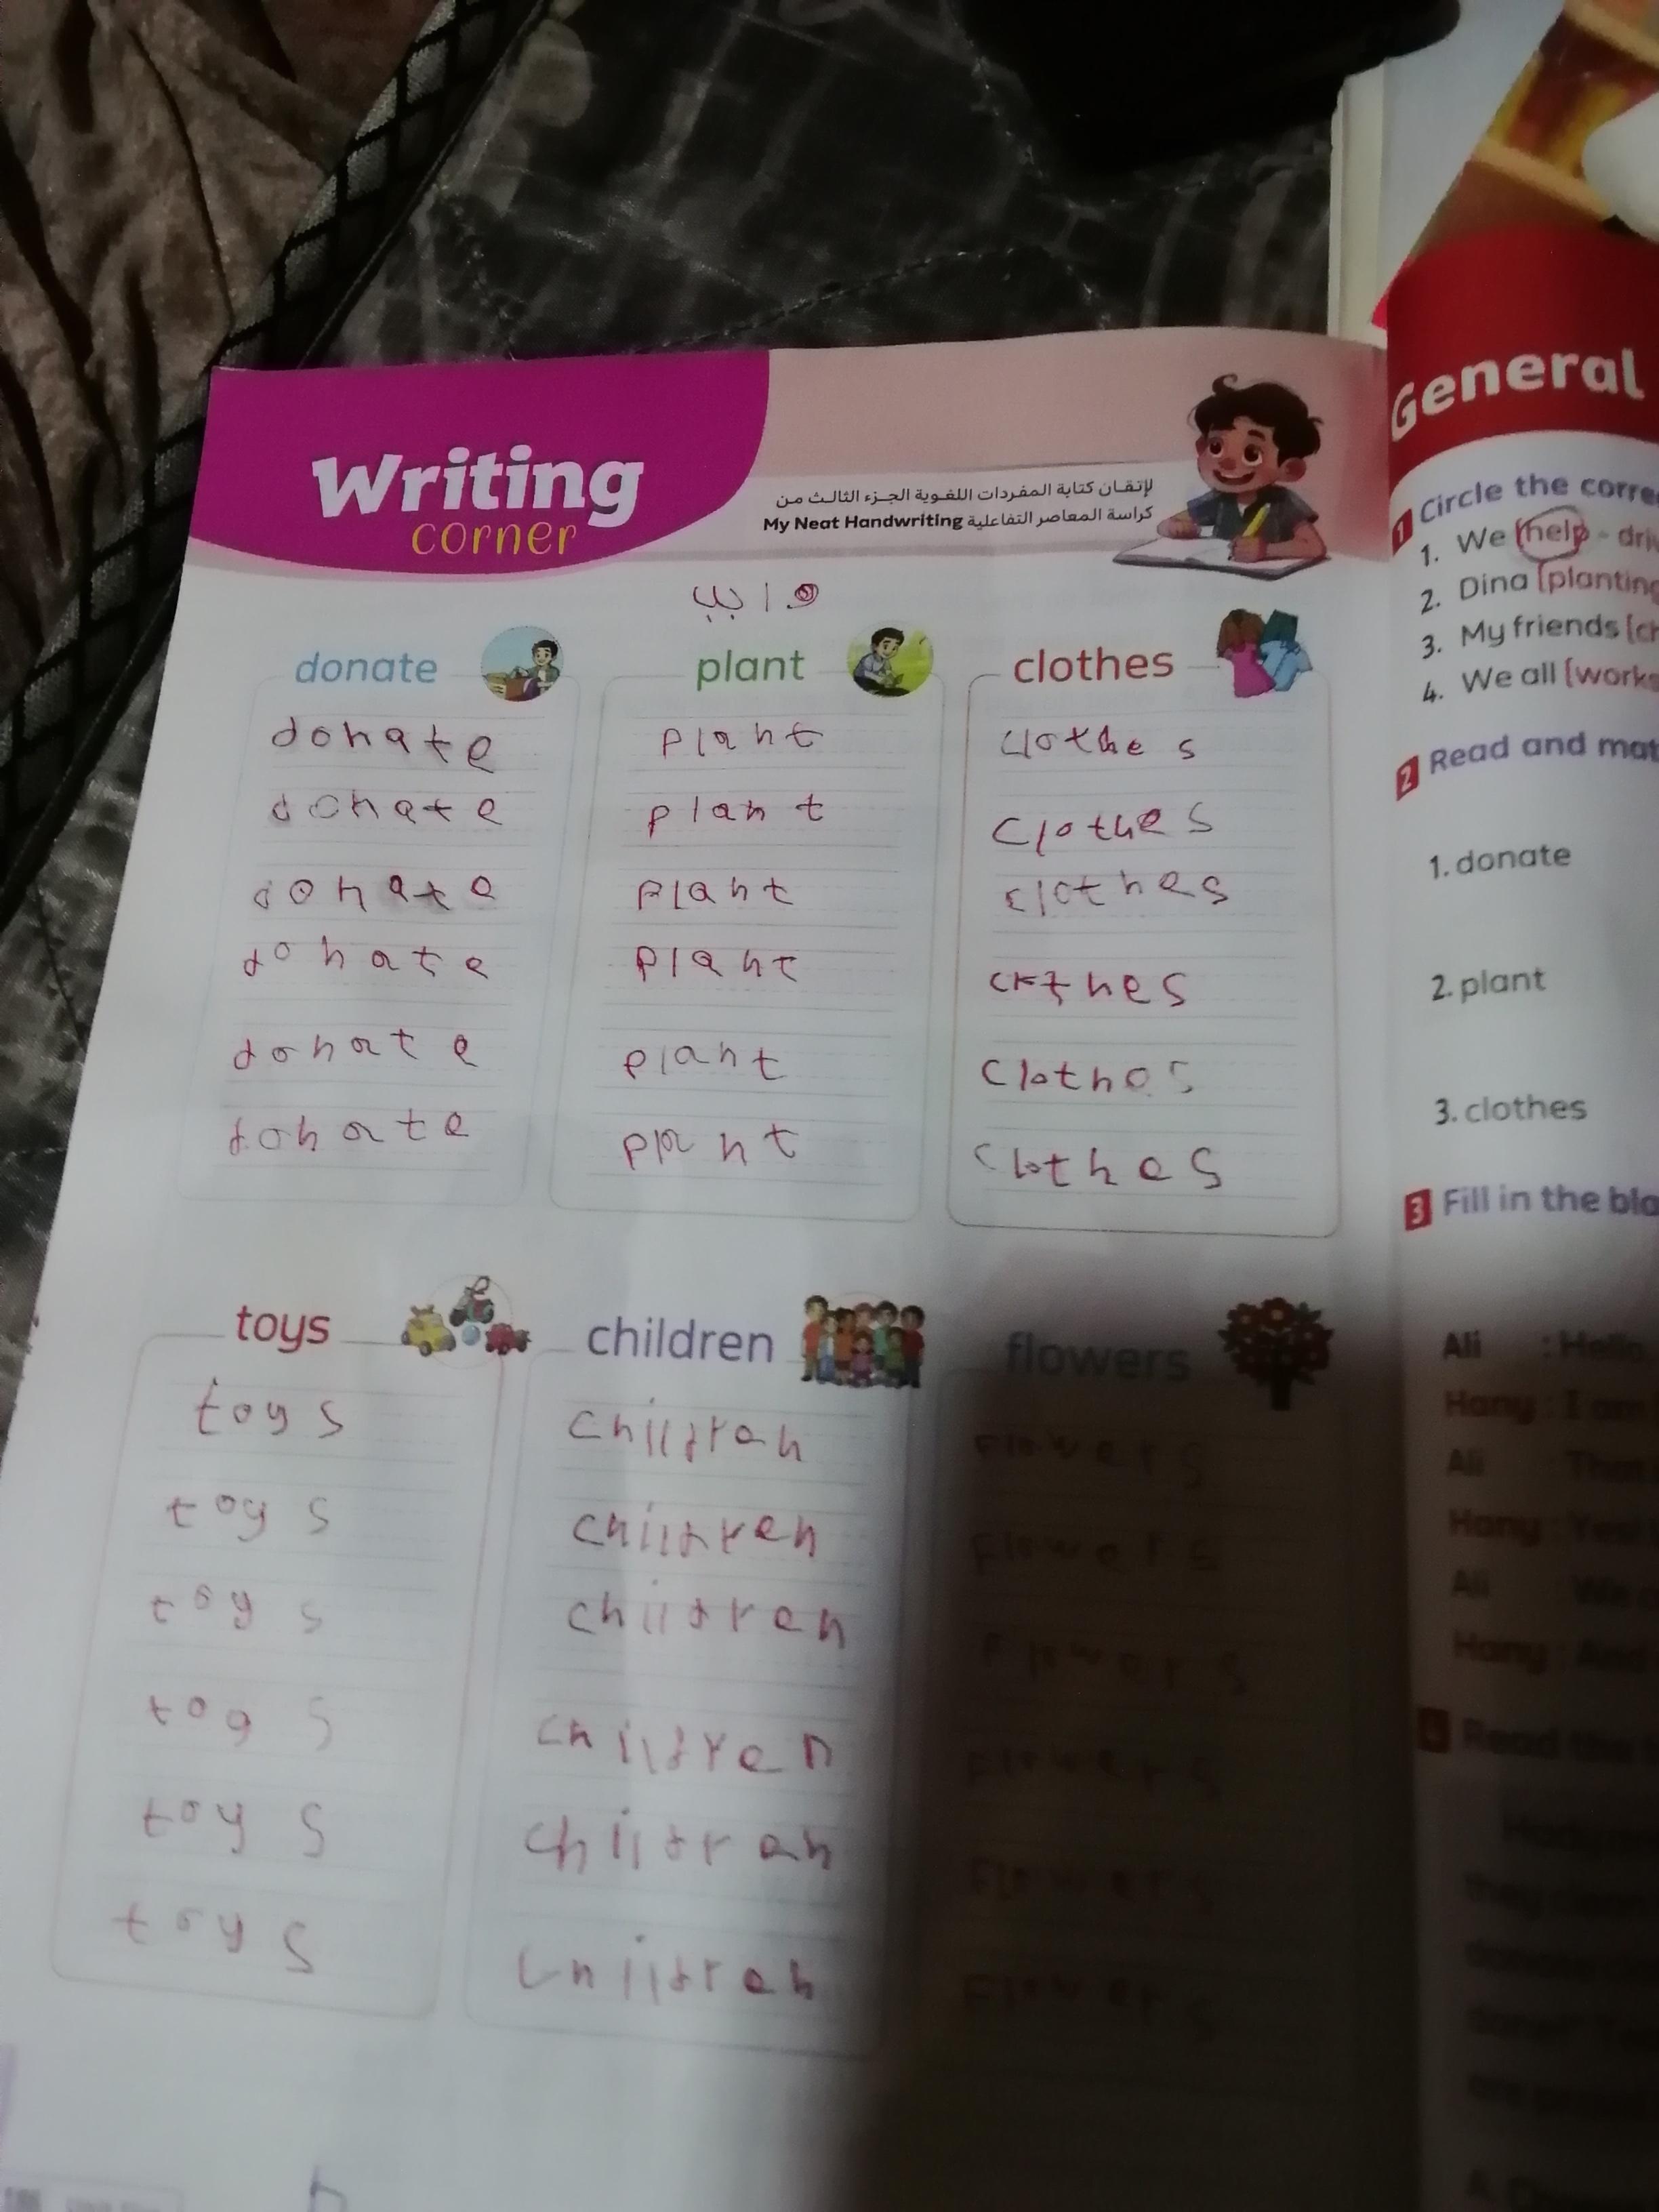 Writing
corner
لإتقـان كتابة المفردات اللغـوية الجـزء الثالـث مـن
كراسة المعاصر التفاعلية My Neat Handwriting
واجب
donate
donate
donate
donate
donate
donate
donate
plant
plant
plant
plant
plant
plant
plant
clothes
clothes
clothes
clothes
clothes
clothes
toys
toys
toys
toys
toys
toys
toys
children
children
children
children
children
children
children
flowers
Flowers
Flowers
Flowers
Flowers
Flowers
Flowers
General
1 Circle the
1. We [help -
2. Dina [planting
3. My friends
4. We all [works
2 Read and
1. donate
2. plant
3. clothes
3 Fill in the
Ali : Hello
Hany : I am
Ali : That
Hany : Yes
Ali : We
Hany : And
4 Read the